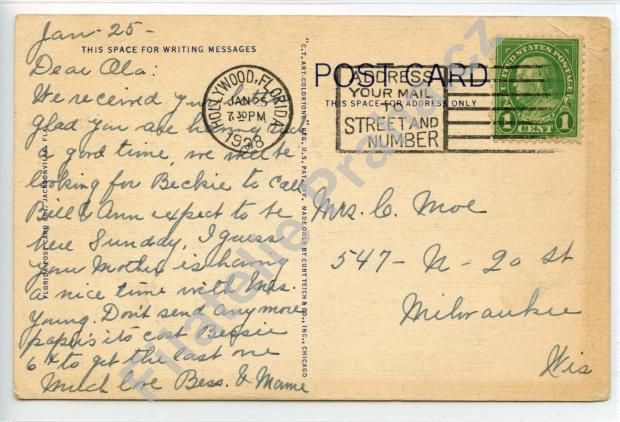 Jan-25-
THIS SPACE FOR WRITING MESSAGES
Dear Ola:
We received your letter
glad you are having such
a good time, we will be
looking for Beckie to call
Bill & Ann expect to be
here Sunday, I guess
your Mother is having
a nice time with Mrs.
Young. Don't send any more
papers its cost Bessie
6¢ to get the last one
Much love Bess. & Mame
FLORIDA POST CARD CO., JACKSONVILLE, FLA.
"C.T. ART-COLORTONE" REG. U.S. PAT. OFF. MADE ONLY BY CURT TEICH & CO., INC., CHICAGO
POST CARD
THIS SPACE FOR ADDRESS ONLY
HOLLYWOOD, FLORIDA
JAN 25
7 30PM
1938
ADDRESS
YOUR MAIL
TO
STREET AND
NUMBER
UNITED STATES POSTAGE
1 CENT 1
Mrs. C. Moe
547-N-20 St
Milwaukee
Wis